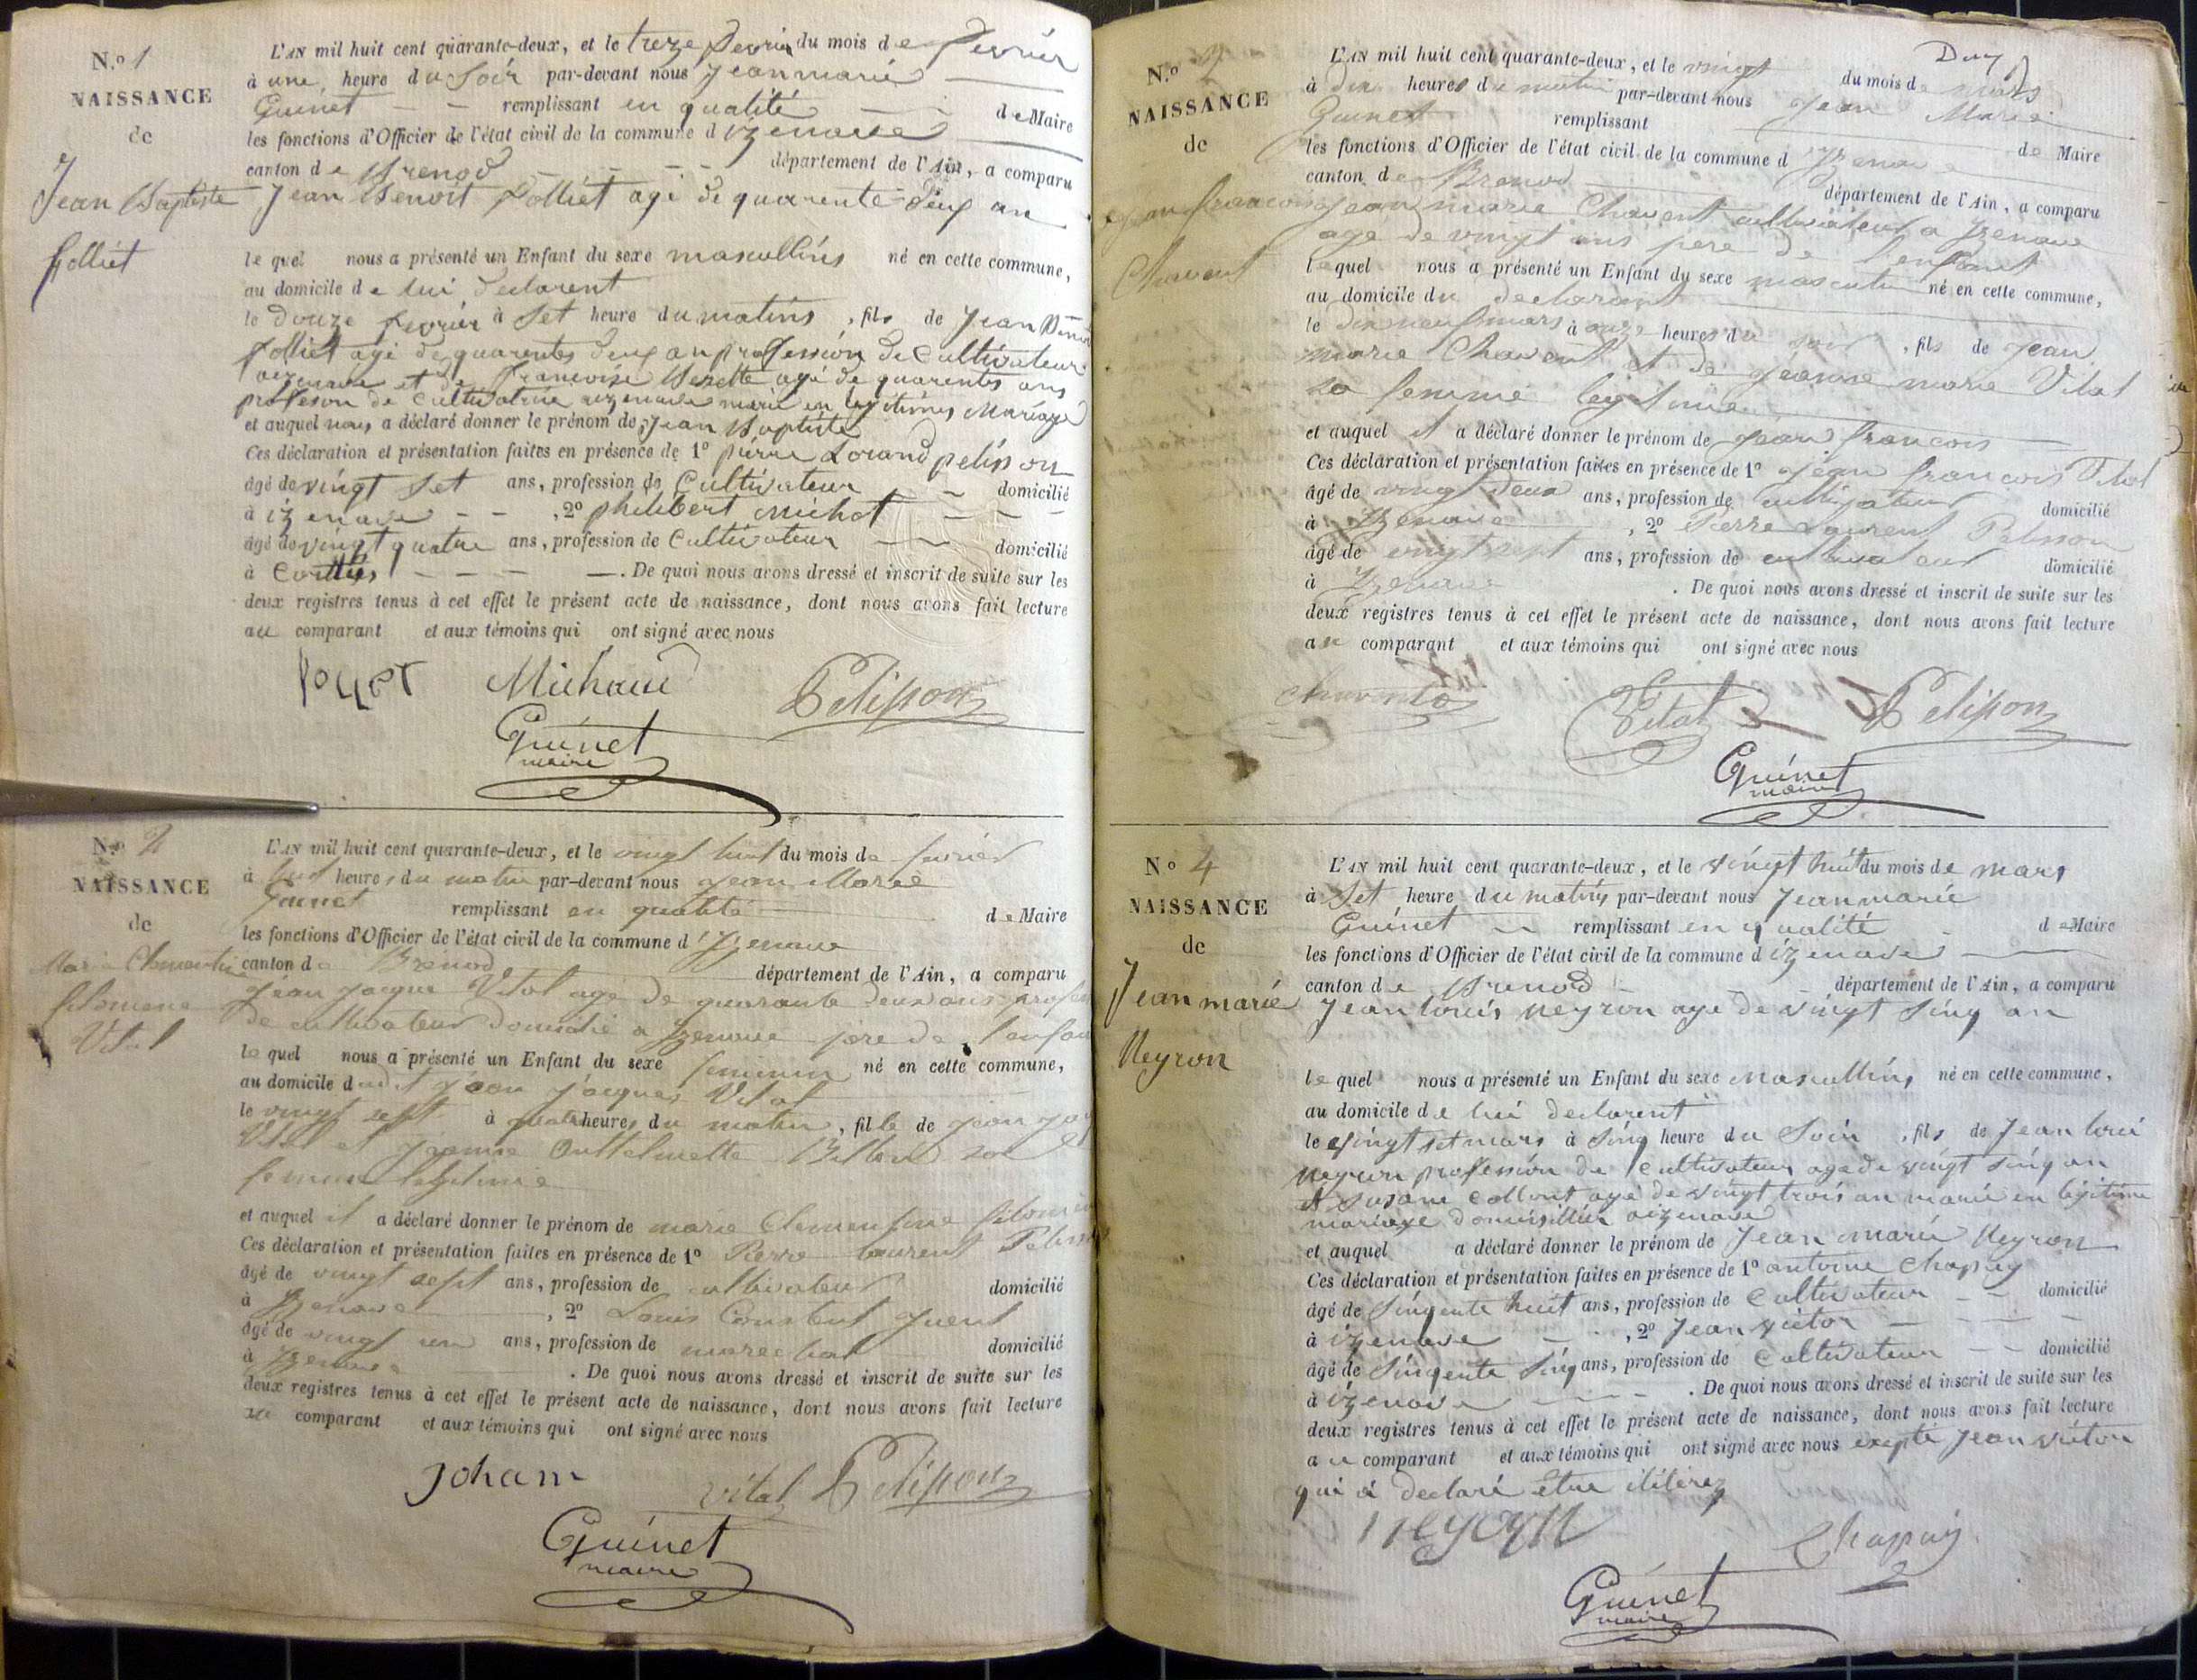 N.º 1
NAISSANCE
de
Jean Baptiste
folliet
L'AN mil huit cent quarante-deux, et le treze fevrier du mois de fevrier
à une heure du Soir par-devant nous Jean marie
Guinet remplissant en qualité de Maire
les fonctions d'Officier de l'état civil de la commune d izenave
canton de Brenod département de l'Ain, a comparu
Jean Benoit folliet agé de quarente deux an
le quel nous a présenté un Enfant du sexe masculins né en cette commune,
au domicile de lui declarent
le douze fevrier à Set heure du matins, fils de Jean Benoi
folliet agé de quarentes deux an profession de Cultivateur
aizenave et de francoise agé de quarentes ans
profeson de Cultivatrice aizenave marié en legitimes Mariage
et auquel nous a déclaré donner le prénom de Jean Baptiste
Ces déclaration et présentation faites en présence de 1º pierre Lorand pelisson
âgé de vingt Set ans, profession de Cultivateur domicilié
à izenave , 2º philibert michot
âgé de vingt quatre ans, profession de Cultivateur domicilié
à . De quoi nous avons dressé et inscrit de suite sur les
deux registres tenus à cet effet le présent acte de naissance, dont nous avons fait lecture
au comparant et aux témoins qui ont signé avec nous
Michaud Pelisson
Guinet
maire
N.º 2
NAISSANCE
de
Marie Clementine
filomene
Vital
L'AN mil huit cent quarante-deux, et le vingt huit du mois de fevrier
à huit heures du matin par-devant nous Jean Marie
Guinet remplissant en qualité de Maire
les fonctions d'Officier de l'état civil de la commune d'Izenave
canton de Brenod département de l'Ain, a comparu
Jean Jacque Vital agé de quarante deux ans profes
de cultivateur domicilié a Izenave pere de l'enfan
le quel nous a présenté un Enfant du sexe feminin né en cette commune,
au domicile dudit Jean Jacques Vital
le vingt sept à quatre heures du matin, fille de Jean Jac
Vital et Jeanne sa
femme legitime
et auquel il a déclaré donner le prénom de marie Clementine filomene
Ces déclaration et présentation faites en présence de 1º Pierre Laurent Peliss
âgé de vingt sept ans, profession de cultivateur domicilié
à Izenave , 2º Louis Constant
âgé de vingt un ans, profession de marechal domicilié
à Izenave . De quoi nous avons dressé et inscrit de suite sur les
deux registres tenus à cet effet le présent acte de naissance, dont nous avons fait lecture
au comparant et aux témoins qui ont signé avec nous
Vital Pelisson
Guinet
maire
N.º
NAISSANCE
de
Jean francois
Chavent
L'AN mil huit cent quarante-deux, et le vingt du mois de mars
à dix heures du matin par-devant nous Jean Marie
Guinet remplissant de Maire
les fonctions d'Officier de l'état civil de la commune d Izenave
canton de Brenod département de l'Ain, a comparu
Jean marie Chavent cultivateur a Izenave
age de vingt ans pere de l'enfant
lequel nous a présenté un Enfant du sexe masculin né en cette commune,
au domicile du declarant
le dix neuf mars à onze heures du soir, fils de Jean
marie Chavent et de Jeanne marie Vital
sa femme legitime
et auquel il a déclaré donner le prénom de Jean francois
Ces déclaration et présentation faites en présence de 1º Jean francois Vital
âgé de vingt deux ans, profession de cultivateur domicilié
à Izenave , 2º Pierre Laurent Pelisson
âgé de vingt sept ans, profession de cultivateur domicilié
à Izenave . De quoi nous avons dressé et inscrit de suite sur les
deux registres tenus à cet effet le présent acte de naissance, dont nous avons fait lecture
au comparant et aux témoins qui ont signé avec nous
Vital Pelisson
Guinet
maire
Nº 4
NAISSANCE
de
Jean marie
Neyron
L'AN mil huit cent quarante-deux, et le vingt huit du mois de mars
à Set heure du matins par-devant nous Jean marie
Guinet remplissant en qualité de Maire
les fonctions d'Officier de l'état civil de la commune d izenave
canton de Brenod département de l'Ain, a comparu
Jean louis neyron age de vingt sinq an
le quel nous a présenté un Enfant du sexe Masculins né en cette commune,
au domicile de lui declarent
le vingt set mars à Sinq heure du Soir, fils de Jean loui
neyron profession de Cultivateur age de vingt sinq an
et Susane Collont agé de vingt trois an marié en légitime
mariage aizenave
et auquel a déclaré donner le prénom de Jean marie Neyron
Ces déclaration et présentation faites en présence de 1º antoine Chapuy
âgé de Sinqente huit ans, profession de Cultivateur domicilié
à izenave , 2º Jean victor
âgé de Sinqente Sinq ans, profession de Cultivateur domicilié
à izenave . De quoi nous avons dressé et inscrit de suite sur les
deux registres tenus à cet effet le présent acte de naissance, dont nous avons fait lecture
au comparant et aux témoins qui ont signé avec nous exepté Jean victor
qui a declaré etre
neyron Chapuy
Guinet
maire